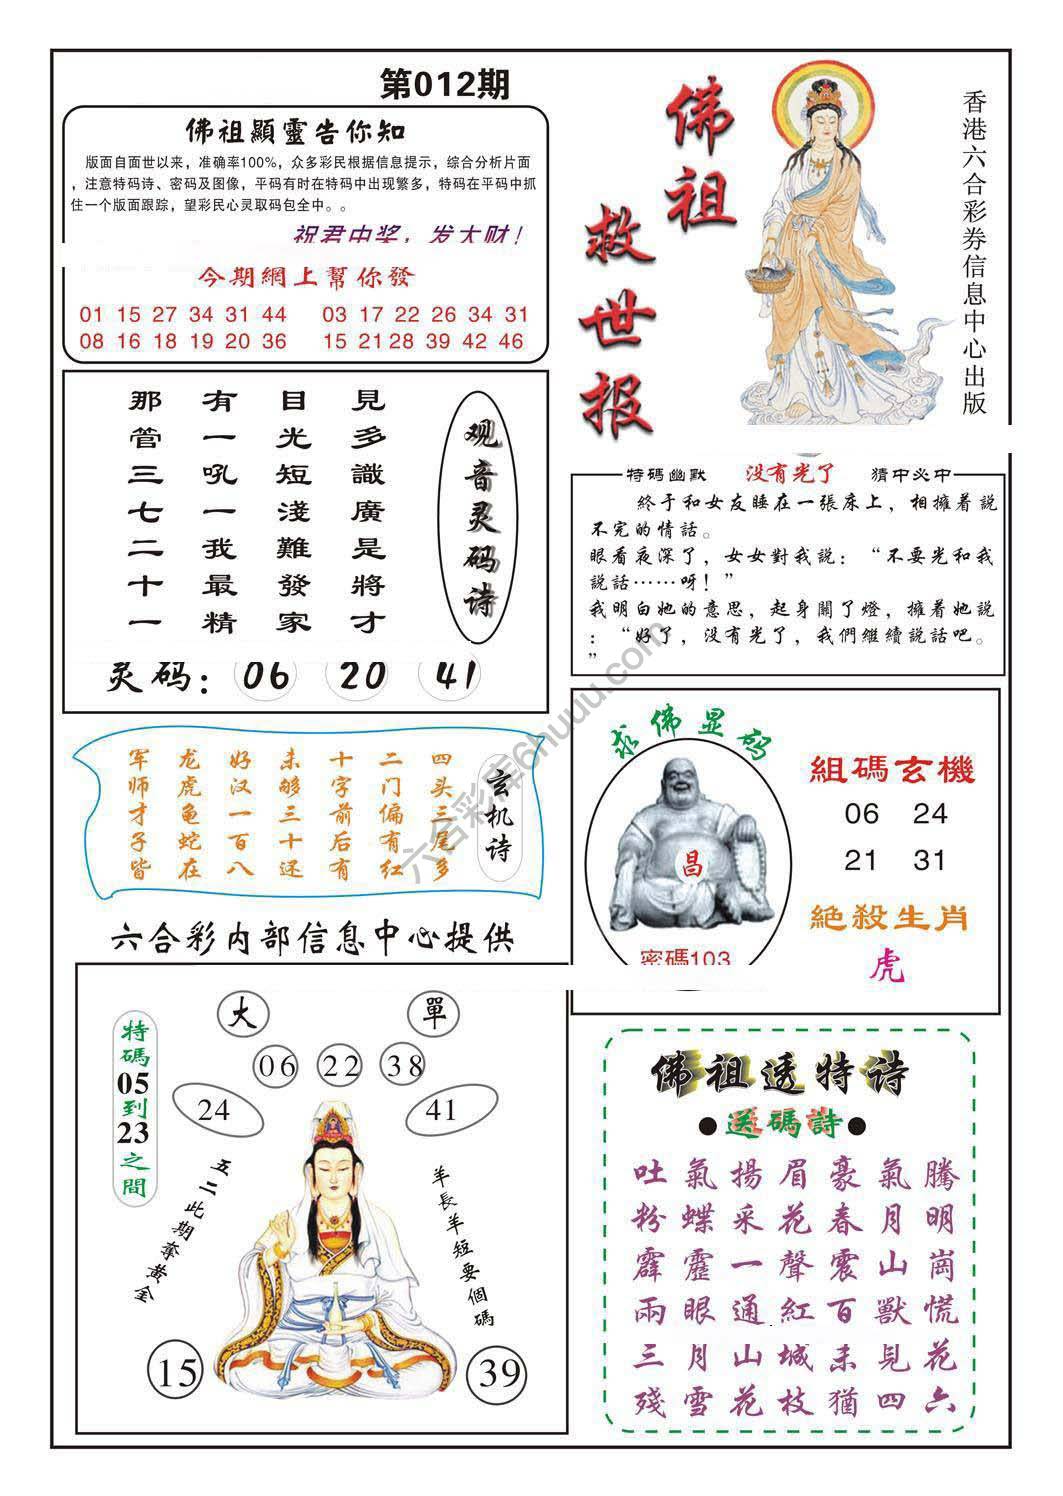 第012期
佛祖顯靈告你知
版面自面世以来，准确率100%，众多彩民根据信息提示，综合分析片面
，注意特码诗、密码及图像，平码有时在特码中出现繁多，特码在平码中抓
住一个版面跟踪，望彩民心灵取码包全中。。
祝君中奖，发大财！
今期網上幫你發
01 15 27 34 31 44 03 17 22 26 34 31
08 16 18 19 20 36 15 21 28 39 42 46
佛祖
救世报
香港六合彩券信息中心出版
見多識廣是將才
目光短淺難發家
有一吼一我最精
那管三七二十一
观音灵码诗
灵码：06 20 41
特碼幽默 没有光了 猜中必中
終于和女友睡在一張床上，相擁着説
不完的情話。
眼看夜深了，女女對我説：“不要光和我
説話……呀！”
我明白她的意思，起身關了燈，擁着她説
：“好了，没有光了，我們繼續説話吧。
”
玄机诗
四头三尾多
二门偏有红
十字前后有
未够三十还
好汉一百八
龙虎龟蛇在
军师才子皆
求佛显码
昌
密碼103
組碼玄機
06 24
21 31
絶殺生肖
虎
六合彩内部信息中心提供
特碼05到23之間
大 單
06 22 38
24 41
五二此期奪黄金
羊長羊短要個碼
15 39
佛祖透特诗
●送碼詩●
吐氣揚眉豪氣騰
粉蝶采花春月明
霹靂一聲震山崗
兩眼通紅百獸慌
三月山城未見花
殘雪花枝猶四六
六合彩库6huuu.com